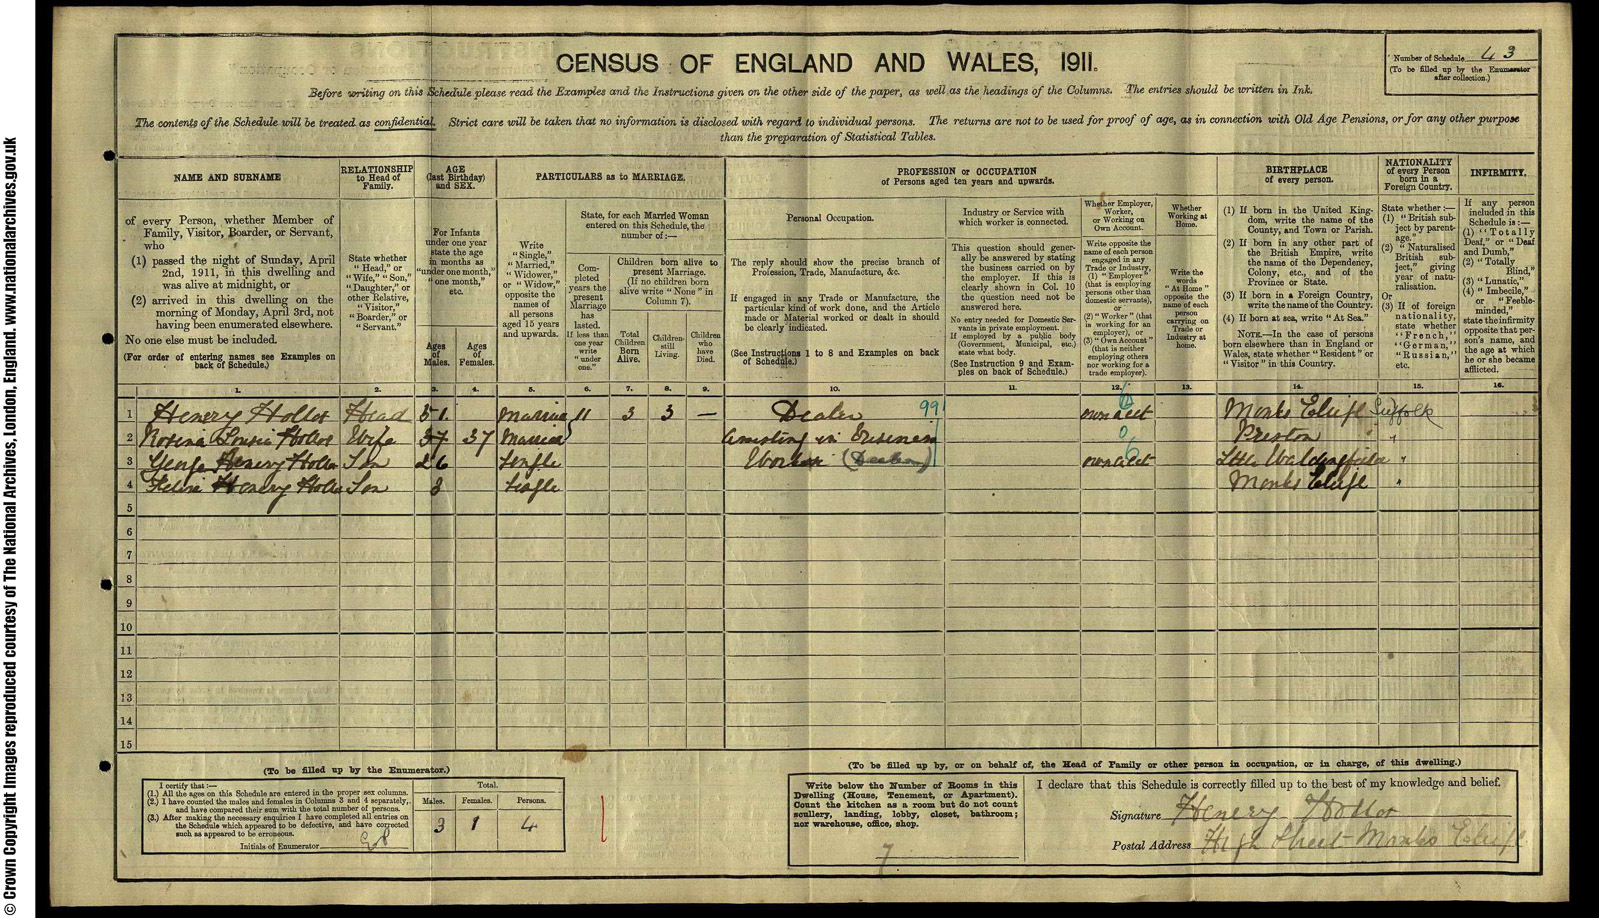 CENSUS OF ENGLAND AND WALES, 1911.
Number of Schedule 43
(To be filled up by the Enumerator
after collection.)
Before writing on this Schedule please read the Examples and the Instructions given on the other side of the paper, as well as the headings of the Columns. The entries should be written in Ink.
The contents of the Schedule will be treated as confidential. Strict care will be taken that no information is disclosed with regard to individual persons. The returns are not to be used for proof of age, as in connection with Old Age Pensions, or for any other purpose
than the preparation of Statistical Tables.
NAME AND SURNAME
of every Person, whether Member of
Family, Visitor, Boarder, or Servant,
who
(1) passed the night of Sunday, April
2nd, 1911, in this dwelling and
was alive at midnight, or
(2) arrived in this dwelling on the
morning of Monday, April 3rd, not
having been enumerated elsewhere.
No one else must be included.
(For order of entering names see Examples on
back of Schedule.)
RELATIONSHIP
to Head of
Family.
State whether
"Head," or
"Wife," "Son,"
"Daughter," or
other Relative,
"Visitor,"
"Boarder," or
"Servant."
AGE
(last Birthday)
and SEX.
For Infants
under one year
state the age
in months as
"under one month,"
"one month,"
etc.
Ages
of
Males.
Ages
of
Females.
PARTICULARS as to MARRIAGE.
Write
"Single,"
"Married,"
"Widower,"
or "Widow,"
opposite the
names of
all persons
aged 15 years
and upwards.
State, for each Married Woman
entered on this Schedule, the
number of:—
Completed
years the
present
Marriage
has
lasted.
If less than
one year
write
"under
one."
Children born alive to
present Marriage.
(If no children born
alive write "None" in
Column 7).
Total
Children
Born
Alive.
Children
still
Living.
Children
who
have
Died.
PROFESSION or OCCUPATION
of Persons aged ten years and upwards.
Personal Occupation.
The reply should show the precise branch of
Profession, Trade, Manufacture, &c.
If engaged in any Trade or Manufacture, the
particular kind of work done, and the Article
made or Material worked or dealt in should
be clearly indicated.
(See Instructions 1 to 8 and Examples on back
of Schedule.)
Industry or Service with
which worker is connected.
This question should generally
be answered by stating
the business carried on by
the employer. If this is
clearly shown in Col. 10
the question need not be
answered here.
No entry needed for Domestic Servants
in private employment.
If employed by a public body
(Government, Municipal, etc.)
state what body.
(See Instruction 9 and Examples
on back of Schedule.)
Whether Employer,
Worker,
or Working on
Own Account.
Write opposite the
name of each person
engaged in any
Trade or Industry,
(1) "Employer"
(that is employing
persons other than
domestic servants),
or
(2) "Worker" (that
is working for an
employer), or
(3) "Own Account"
(that is neither
employing others
nor working for a
trade employer).
Whether
Working at
Home.
Write the
words
"At Home"
opposite the
name of each
person
carrying on
Trade or
Industry at
home.
BIRTHPLACE
of every person.
(1) If born in the United Kingdom,
write the name of the
County, and Town or Parish.
(2) If born in any other part of
the British Empire, write
the name of the Dependency,
Colony, etc., and of the
Province or State.
(3) If born in a Foreign Country,
write the name of the Country.
(4) If born at sea, write "At Sea."
NOTE.—In the case of persons
born elsewhere than in England or
Wales, state whether "Resident" or
"Visitor" in this Country.
NATIONALITY
of every Person
born in a
Foreign Country.
State whether:—
(1) "British subject
by parentage."
(2) "Naturalised
British subject,"
giving
year of naturalisation.
Or
(3) If of foreign
nationality,
state whether
"French,"
"German,"
"Russian,"
etc.
INFIRMITY.
If any person
included in this
Schedule is:—
(1) "Totally
Deaf," or "Deaf
and Dumb,"
(2) "Totally
Blind,"
(3) "Lunatic,"
(4) "Imbecile,"
or "Feeble-
minded,"
state the infirmity
opposite that person's
name, and
the age at which
he or she became
afflicted.
1. 2. 3. 4. 5. 6. 7. 8. 9. 10. 11. 12. 13. 14. 15. 16.
1 Henery Hollox Head 51 Married 11 3 3 — Dealer 99 own acct Monks Eleigh Suffolk
2 Rosina Louisa Hollox Wife 37 37 Married assisting in Business Preston "
3 George Henery Hollox Son 26 Single Worker (Dealer) own acct Little Waldingfield "
4 Henery Hollox Son 3 Single Monks Eleigh "
5
6
7
8
9
10
11
12
13
14
15
(To be filled up by the Enumerator.)
I certify that:—
(1.) All the ages on this Schedule are entered in the proper sex columns.
(2.) I have counted the males and females in Columns 3 and 4 separately,
and have compared their sum with the total number of persons.
(3.) After making the necessary enquiries I have completed all entries on
the Schedule which appeared to be defective, and have corrected
such as appeared to be erroneous.
Initials of Enumerator
Total.
Males. Females. Persons.
3 1 4
(To be filled up by, or on behalf of, the Head of Family or other person in occupation, or in charge, of this dwelling.)
Write below the Number of Rooms in this
Dwelling (House, Tenement, or Apartment).
Count the kitchen as a room but do not count
scullery, landing, lobby, closet, bathroom;
nor warehouse, office, shop.
7
I declare that this Schedule is correctly filled up to the best of my knowledge and belief.
Signature Henery Hollox
Postal Address High Street Monks Eleigh
© Crown Copyright Images reproduced courtesy of The National Archives, London, England. www.nationalarchives.gov.uk